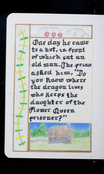 One day he came
to a hut, in front
of which sat an
old man. The prince
asked him, "Do
you know where
the dragon lives
who keeps the
daughter of the
Flower Queen
prisoner?"